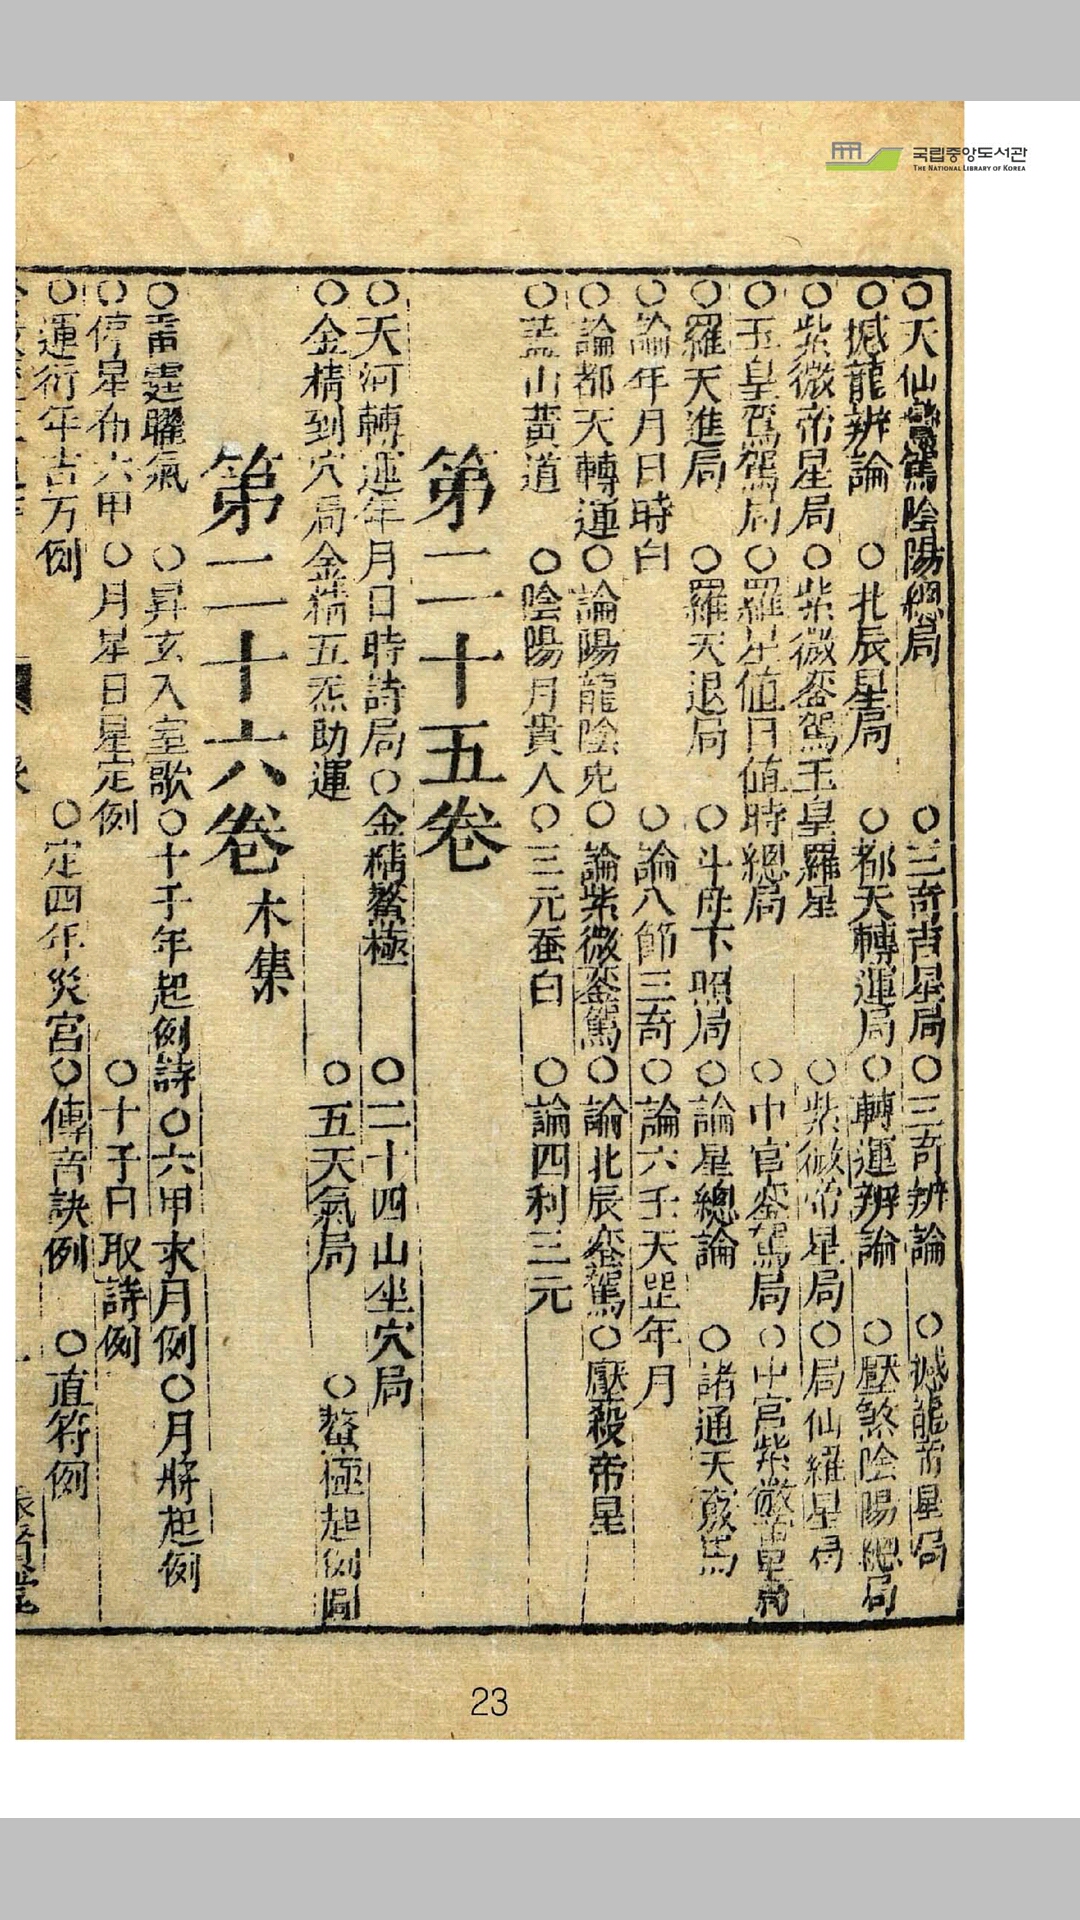 국립중앙도서관
THE NATIONAL LIBRARY OF KOREA
○天仙鸞駕陰陽總局○三奇吉星局○三奇辨論○撼龍帝星局
○撼龍辨論○北辰星局○都天轉運局○轉運辨論○壓煞陰陽總局
○紫微帝星局○紫微鑾駕玉皇羅星○紫微帝星局○局仙羅星局
○玉皇鸞駕局○羅星值日值時總局○中宮鑾駕局○中宮紫微
○羅天進局○羅天退局○斗母下照局○論星總論○諸通天竅馬
○論年月日時白○論八節三奇○論六壬天罡年月
○論都天轉運○論陽龍陰兎○論紫微鑾駕○論北辰鑾駕○壓殺帝星
○蓋山黃道○陰陽月貴人○三元蚕白○論四利三元
第二十五卷
○天河轉運年月日時詩局○金精鰲極○二十四山坐穴局
○金精到穴局金精五炁助運○五天氣局○鰲極起例圖
第二十六卷 木集
○雷霆曜氣○昇玄入室歌○十干年起例詩○六甲求月例○月將起例
○停星布六甲○月星日星定例○十干日取詩例
○運衍年吉方例○定四年災宮○傳音訣例○直符例
23